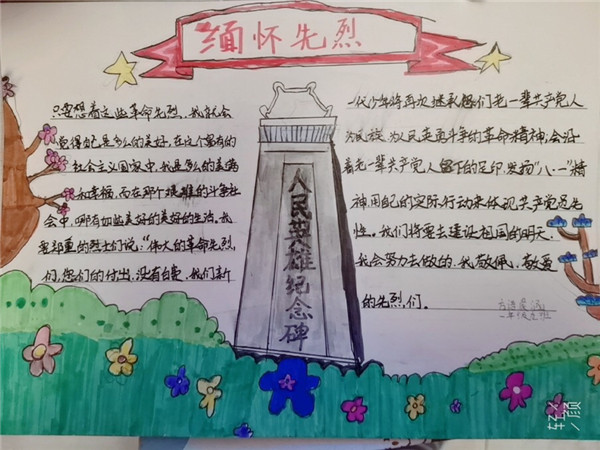 缅怀先烈
只要想着这些革命先烈，我就会
觉得自己是多么的美好，在这个富有的
社会主义国家中，我是多么的美满
和幸福，而在那个艰难的斗争社
会中，哪有如此美好的美好的生活，我
要郑重的烈士们说：“伟大的革命先烈
们，您们的付出，没有白费，我们新
人民英雄纪念碑
一代少年将再次继承您们老一辈共产党人
为民族为人民英勇斗争的革命精神，会沿
着老一辈共产党人留下的足印，发扬“八·一”精
神用自己的实际行动来体现共产党员先
性。我们将要去建设祖国的明天
我会努力去做的，我敬佩，敬爱
的先烈们。
一年级
班
轻颜